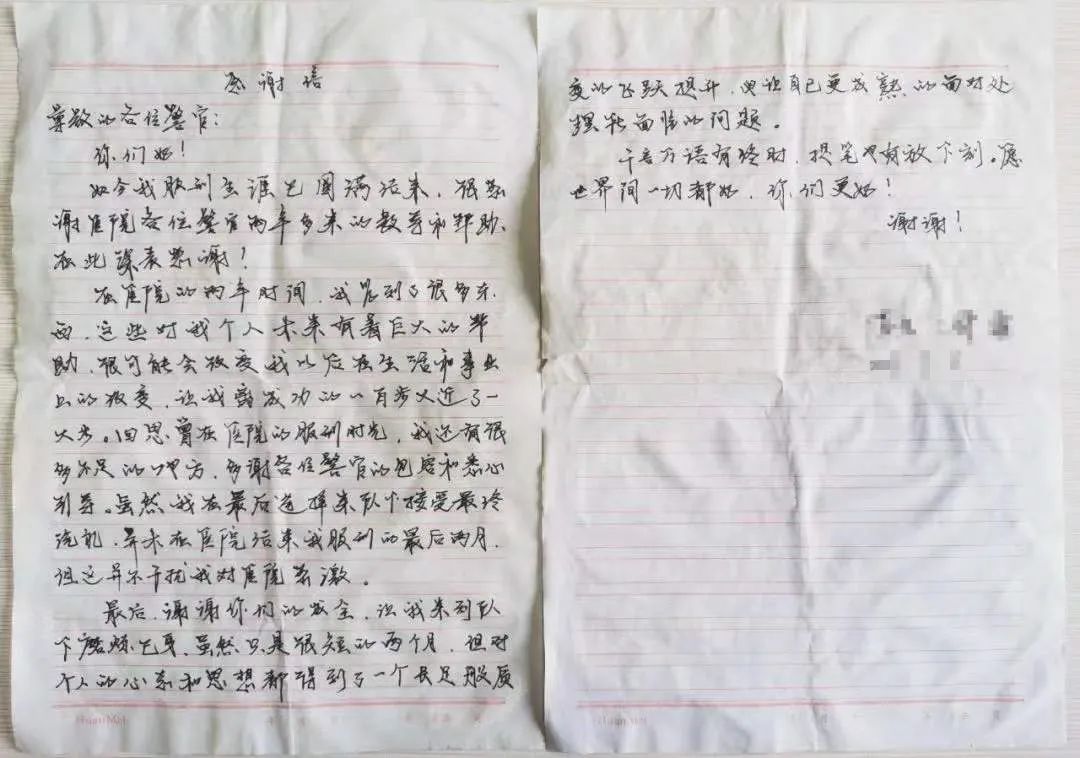 感谢信
尊敬的各位警官：
你们好！
如今我服刑生涯已圆满结束，很感
谢医院各位警官两年多来的教导和帮助、
在此深表感谢！
在医院的两年时间，我学到了很多东
西，这些对我个人未来有着巨大的帮
助，很可能会改变我以后在生活和事业
上的改变，让我离成功的一百步又近了一
大步。回思曾在医院的服刑时光，我还有很
多不足的地方，多谢各位警官的包容和悉心
引导。虽然我在最后选择来队下接受最终
洗礼，并未在医院结束我服刑的最后两月，
但这并不干扰我对医院感激。
最后，谢谢你们的成全，让我来到队
下磨炼己身，虽然只是很短的两个月，但对
个人的心态和思想都得到了一个长足般质
变的飞跃提升，也让自己更成熟的面对处
理新面临的问题。
千言万语有终时，提笔也有放下刻。愿
世界间一切都好，你们更好！
谢谢！
HuanMei